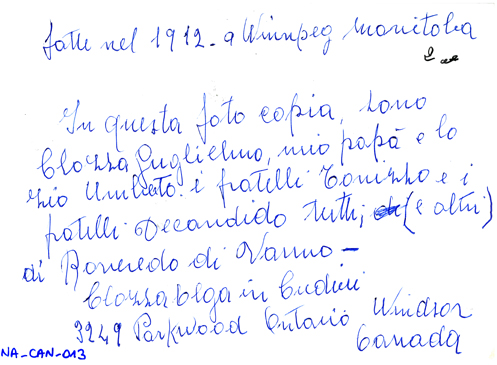 fatte nel 1912 - a Winnipeg Manitoba
In questa foto copia, sono
Clozza Guglielmo, mio papà e lo
zio Umberto. i fratelli Tonizzo e i
fratelli Decandido tutti, (e altri)
di Roveredo di Varmo -
Clozza Olga in
3249 Parkwood Ontario Windsor
Canada
NA-CAN-013